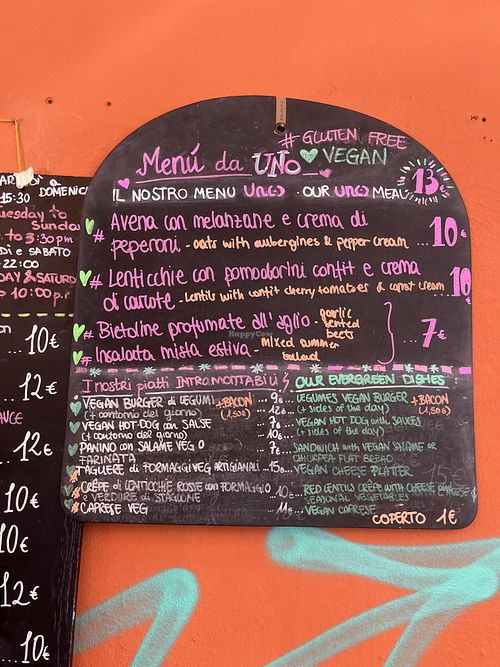 # GLUTEN FREE
Menú da UNO
VEGAN
13
IL NOSTRO MENU UNO - OUR UNO MEAL
# Avena con melanzane e crema di
peperoni. - oats with aubergines & pepper cream ... 10€
# Lenticchie con pomodorini confit e crema
di carote - lentils with confit cherry tomatoes & carrot cream ... 10€
# Bietoline profumate all'aglio - garlic
scented
beets
# Insalata mista estiva - mixed summer
salad
... 7€
I nostri piatti INTRAMONTABILI
VEGAN BURGER di LEGUMI +BACON ... 9€
(+ contorno del giorno) (1,50€) ... 12€
VEGAN HOT DOG con SALSE ... 7€
(+ contorno del giorno) ... 10€
PANINO con SALAME VEG O ... 7€
FARINATA
TAGLIERE di FORMAGGI VEG ARTIGIANALI ... 15€
CRÊPE di LENTICCHIE ROSSE con FORMAGGIO
e VERDURE di STAGIONE 10€
CAPRESE VEG 11€
OUR EVERGREEN DISHES
LEGUMES VEGAN BURGER +BACON
(+ sides of the day) (1,50€)
VEGAN HOT DOG with SAUCES
(+ sides of the day)
SANDWICH with VEGAN SALAME OR
CHICKPEA FLAT BREAD
VEGAN CHEESE PLATTER
RED LENTILS CRÊPE with CHEESE
SEASONAL VEGETABLES
VEGAN CAPRESE
COPERTO 1€
15:30 DOMENIC
uesday to
Sunday
to 3:30 pm
DI e SABATO
22:00
DAY & SATUR
10:00 p.
10€
12€
12€
10€
10€
12€
10€
HappyCow